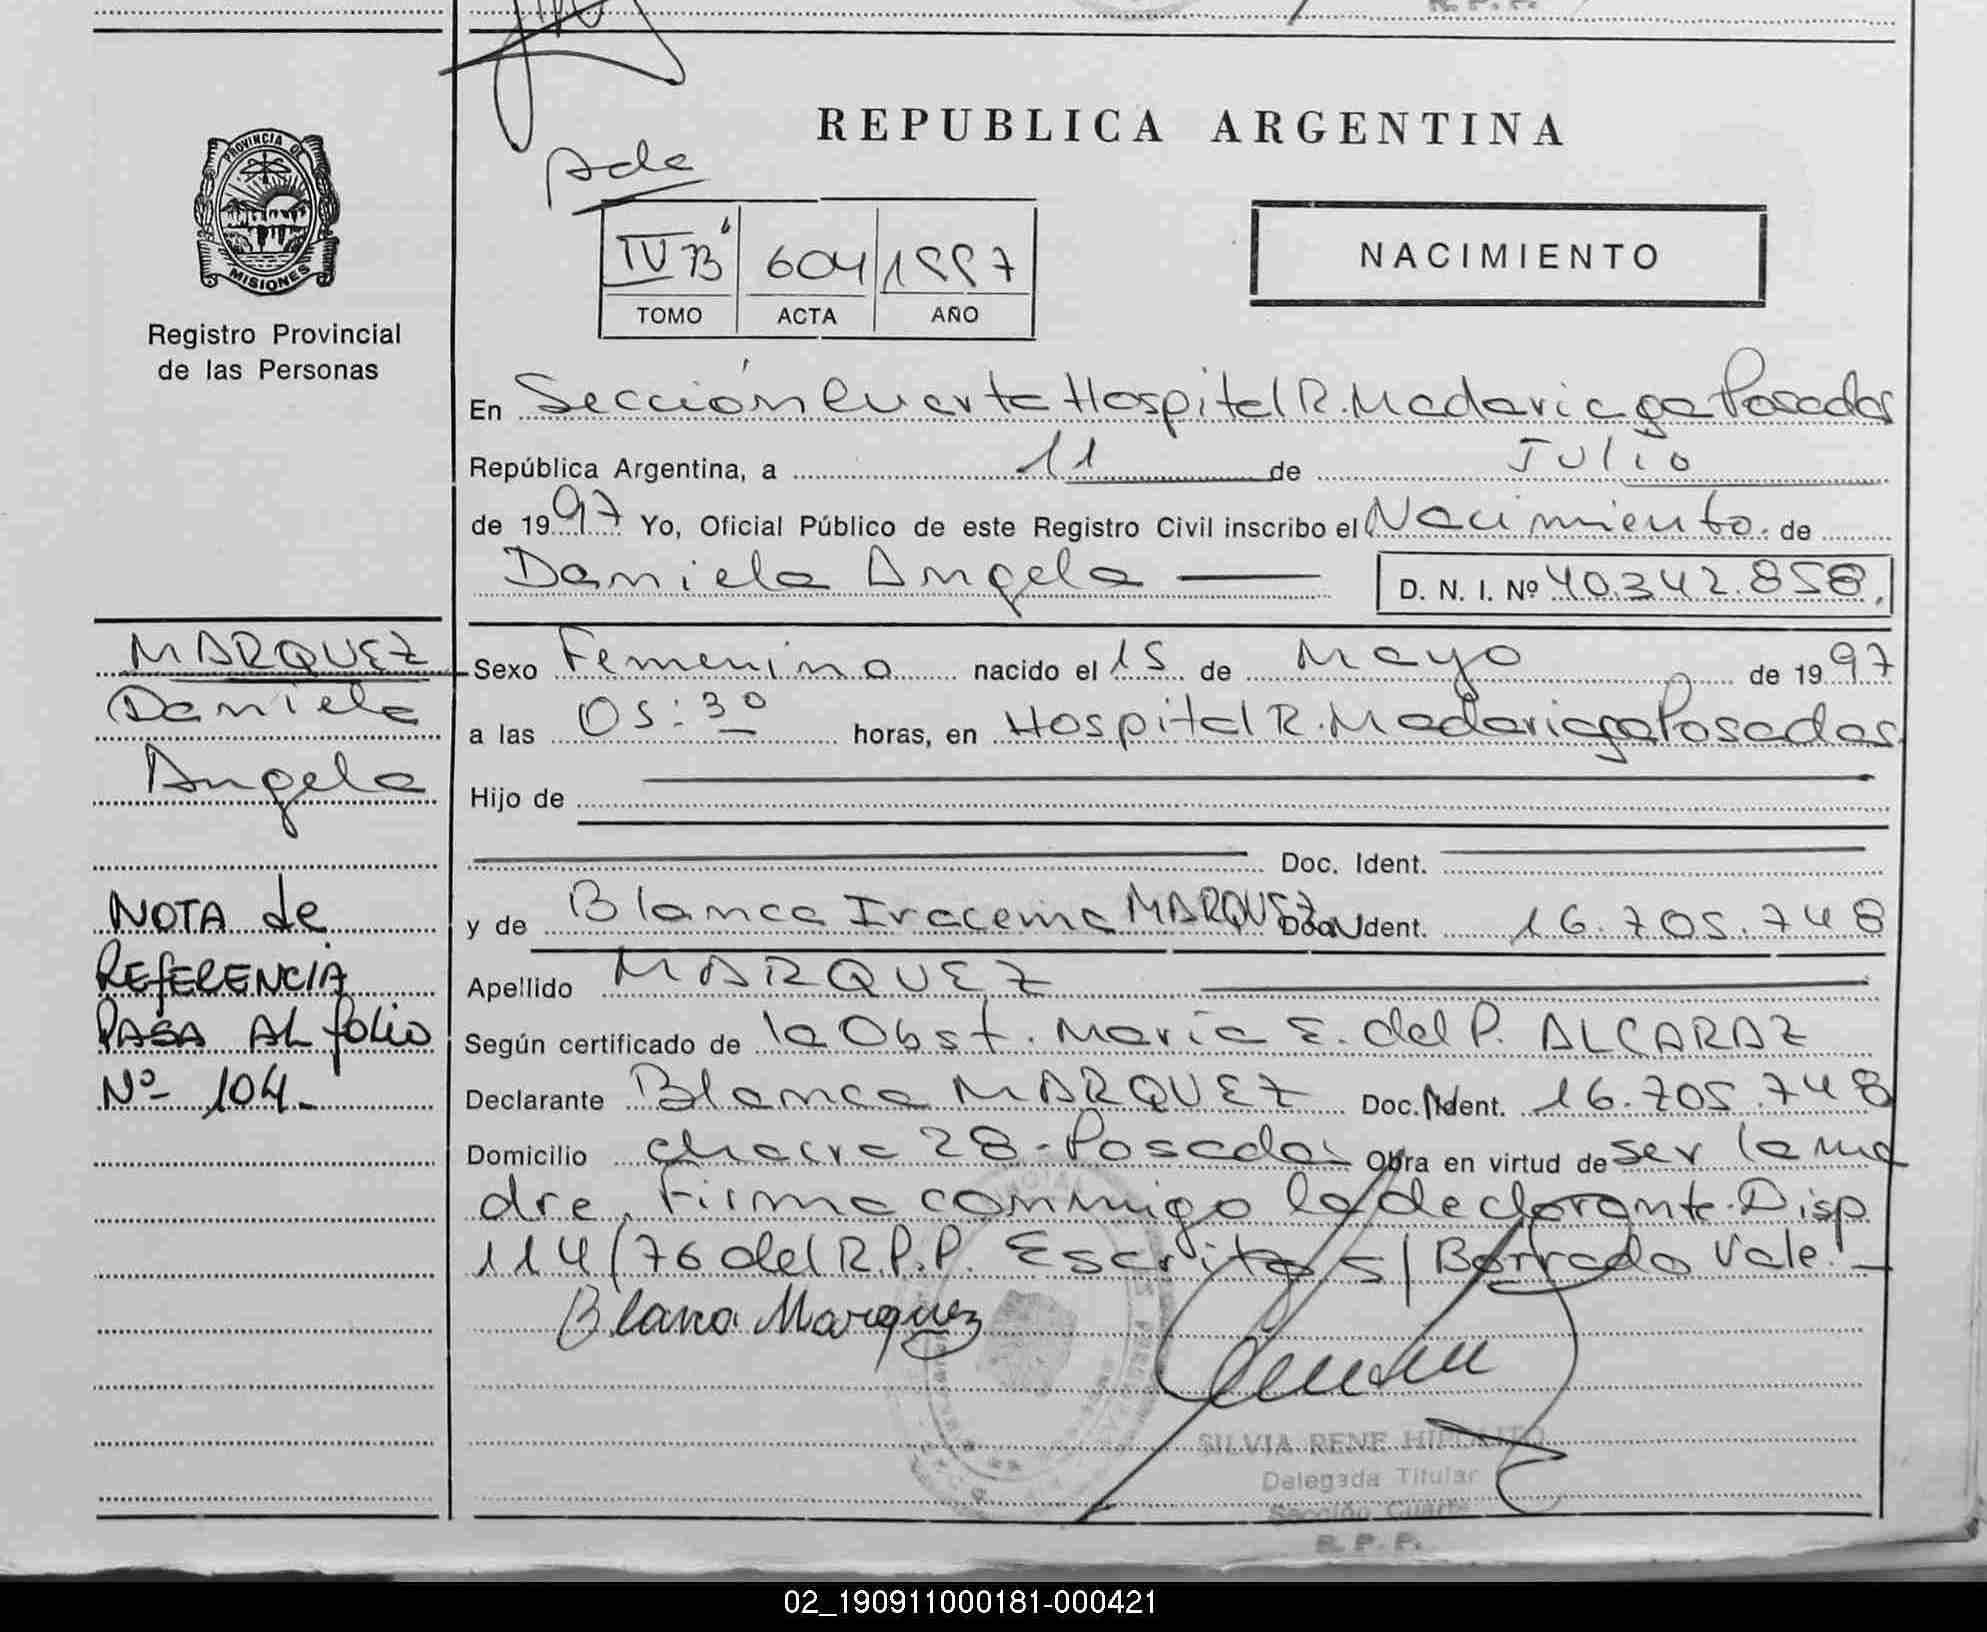 R.P.P.
REPUBLICA ARGENTINA
PROVINCIA DE
MISIONES
Registro Provincial
de las Personas
IV B' 604 1997
TOMO ACTA AÑO
NACIMIENTO
En Sección Cuarta Hospital R. Madariaga Posadas
República Argentina, a 11 de Julio
de 1997 Yo, Oficial Público de este Registro Civil inscribo el Nacimiento. de
Daniela Angela
D. N. I. Nº 40.342.858.
MARQUEZ
Daniela
Angela
Sexo Femenino nacido el 15 de Mayo de 1997
a las 05:30 horas, en Hospital R. Madariaga Posadas
Hijo de
Doc. Ident.
NOTA de
REFERENCIA
PASA AL folio
Nº 104.-
y de Blanca Iracema MARQUEZ Doc. Ident. 16.705.748
Apellido MARQUEZ
Según certificado de la Obst. Maria E. del P. ALCARAZ
Declarante Blanca MARQUEZ Doc. Ident. 16.705.748
Domicilio chacra 28 - Posadas Obra en virtud de ser la ma
dre, Firma conmigo la declarante. Disp
114/76 del R.P.P. Escrito s/ Borrado Vale.-
Blanca Marquez
SILVIA RENE HIPOLITO
Delegada Titular
Sección Cuarta
R. P. P.
02_190911000181-000421